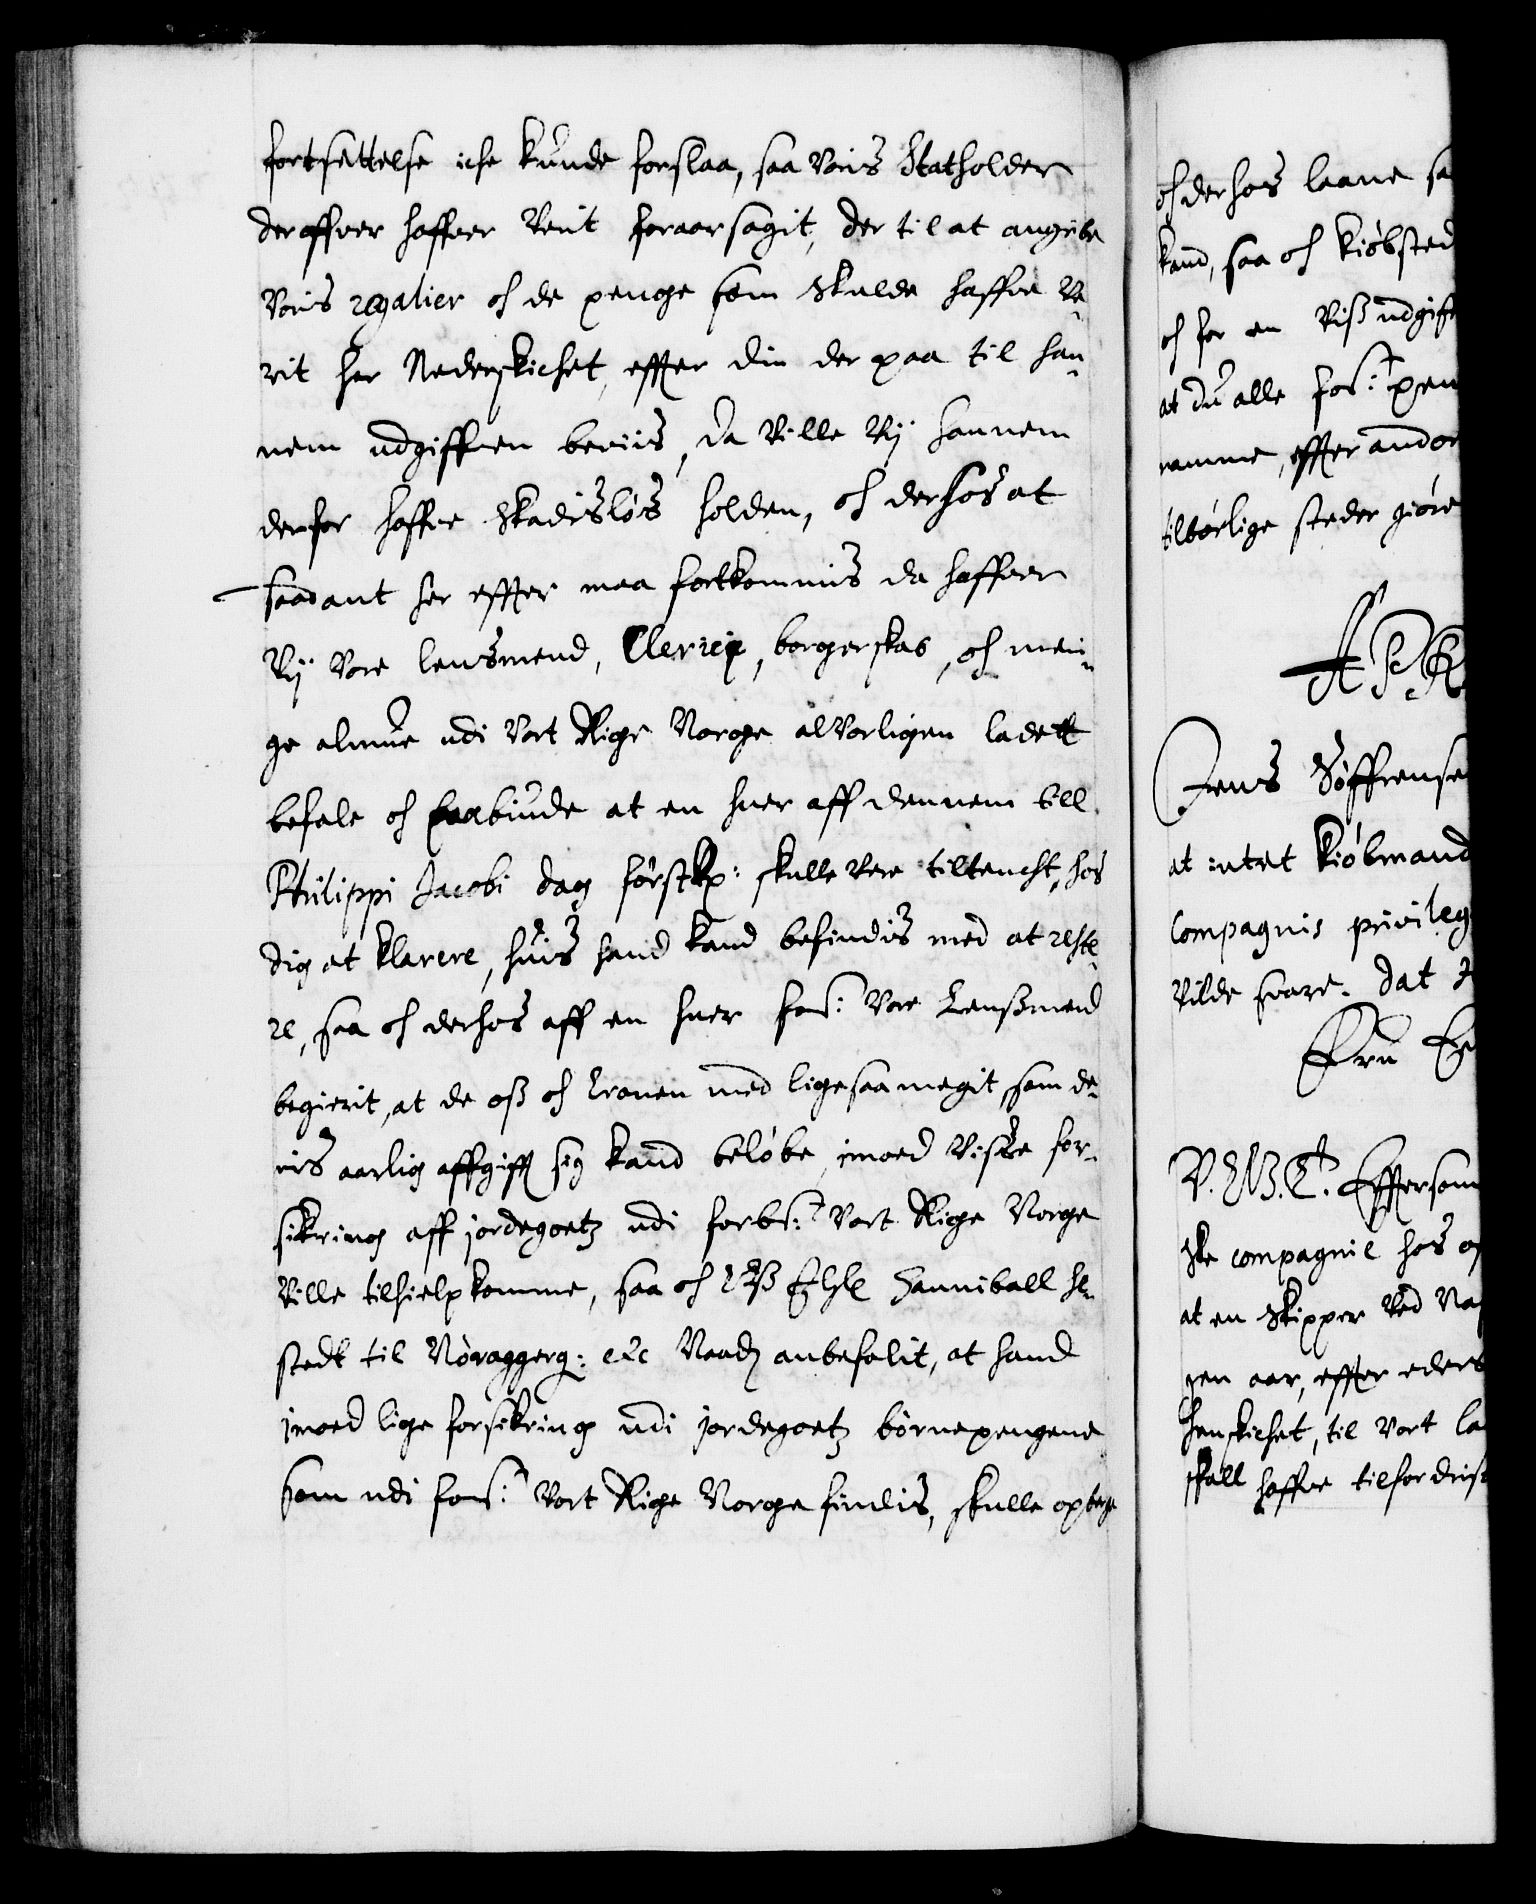 fortsettelse iche kunde forslaa, saa voris Statholder
deroffver haffver verit foraarsagit, der til at angribe
voris regalier och de penge som skulde haffve ve¬
rit her Nederskichet, effter din der paa til han¬
nem udgiffven beviis, da ville vij hannem
derfor haffve skadisløs holden, och derhos at
saadant her effter maa fortkommis da haffver
vij vore lensmend, Clericj, borgerskab, och mei¬
ge almue udi vort Rige Norge alvorligen ladett
befale och paabiude at en huer aff dennem till
Philippi Jacobi dag førstkp: skulle vere tiltencht, hos
dig at klarere, huis hand kand befindis med at reste¬
re, saa och derhos aff en huer fors: vore Lensmend
begierit, at de oss och Cronen med ligesaa megit, som de¬
ris aarlig affgifft sig kand beløbe, jmod visse for¬
sikring aff jordegoetz udi forbs: vort Rige Norge
ville tilhielp komme, saa och Oss Elske Hanniball Se¬
stedt til Nøraggerg: etc Naadj anbefalit, at hand
jmod lige forsikring udi jordegoetz børnepengene
som udi fors: vort Rige Norge findis, skulle optage
och derhos laane sa
kand, saa och kiøbsted
och for en viss udgift
at du alle fors: pen
ramme, effter andor
tilbørlige steder giøre
Jens Søffrense
at intet kiøbmand
Compagnis privileg
vilde svare. Dat
Fru
V. G. T. Eftersom
ske compagnie hos os
at en Skipper ved Na
gen aar, effter eders
henskichet, til vort la
skall haffve tilfordrist